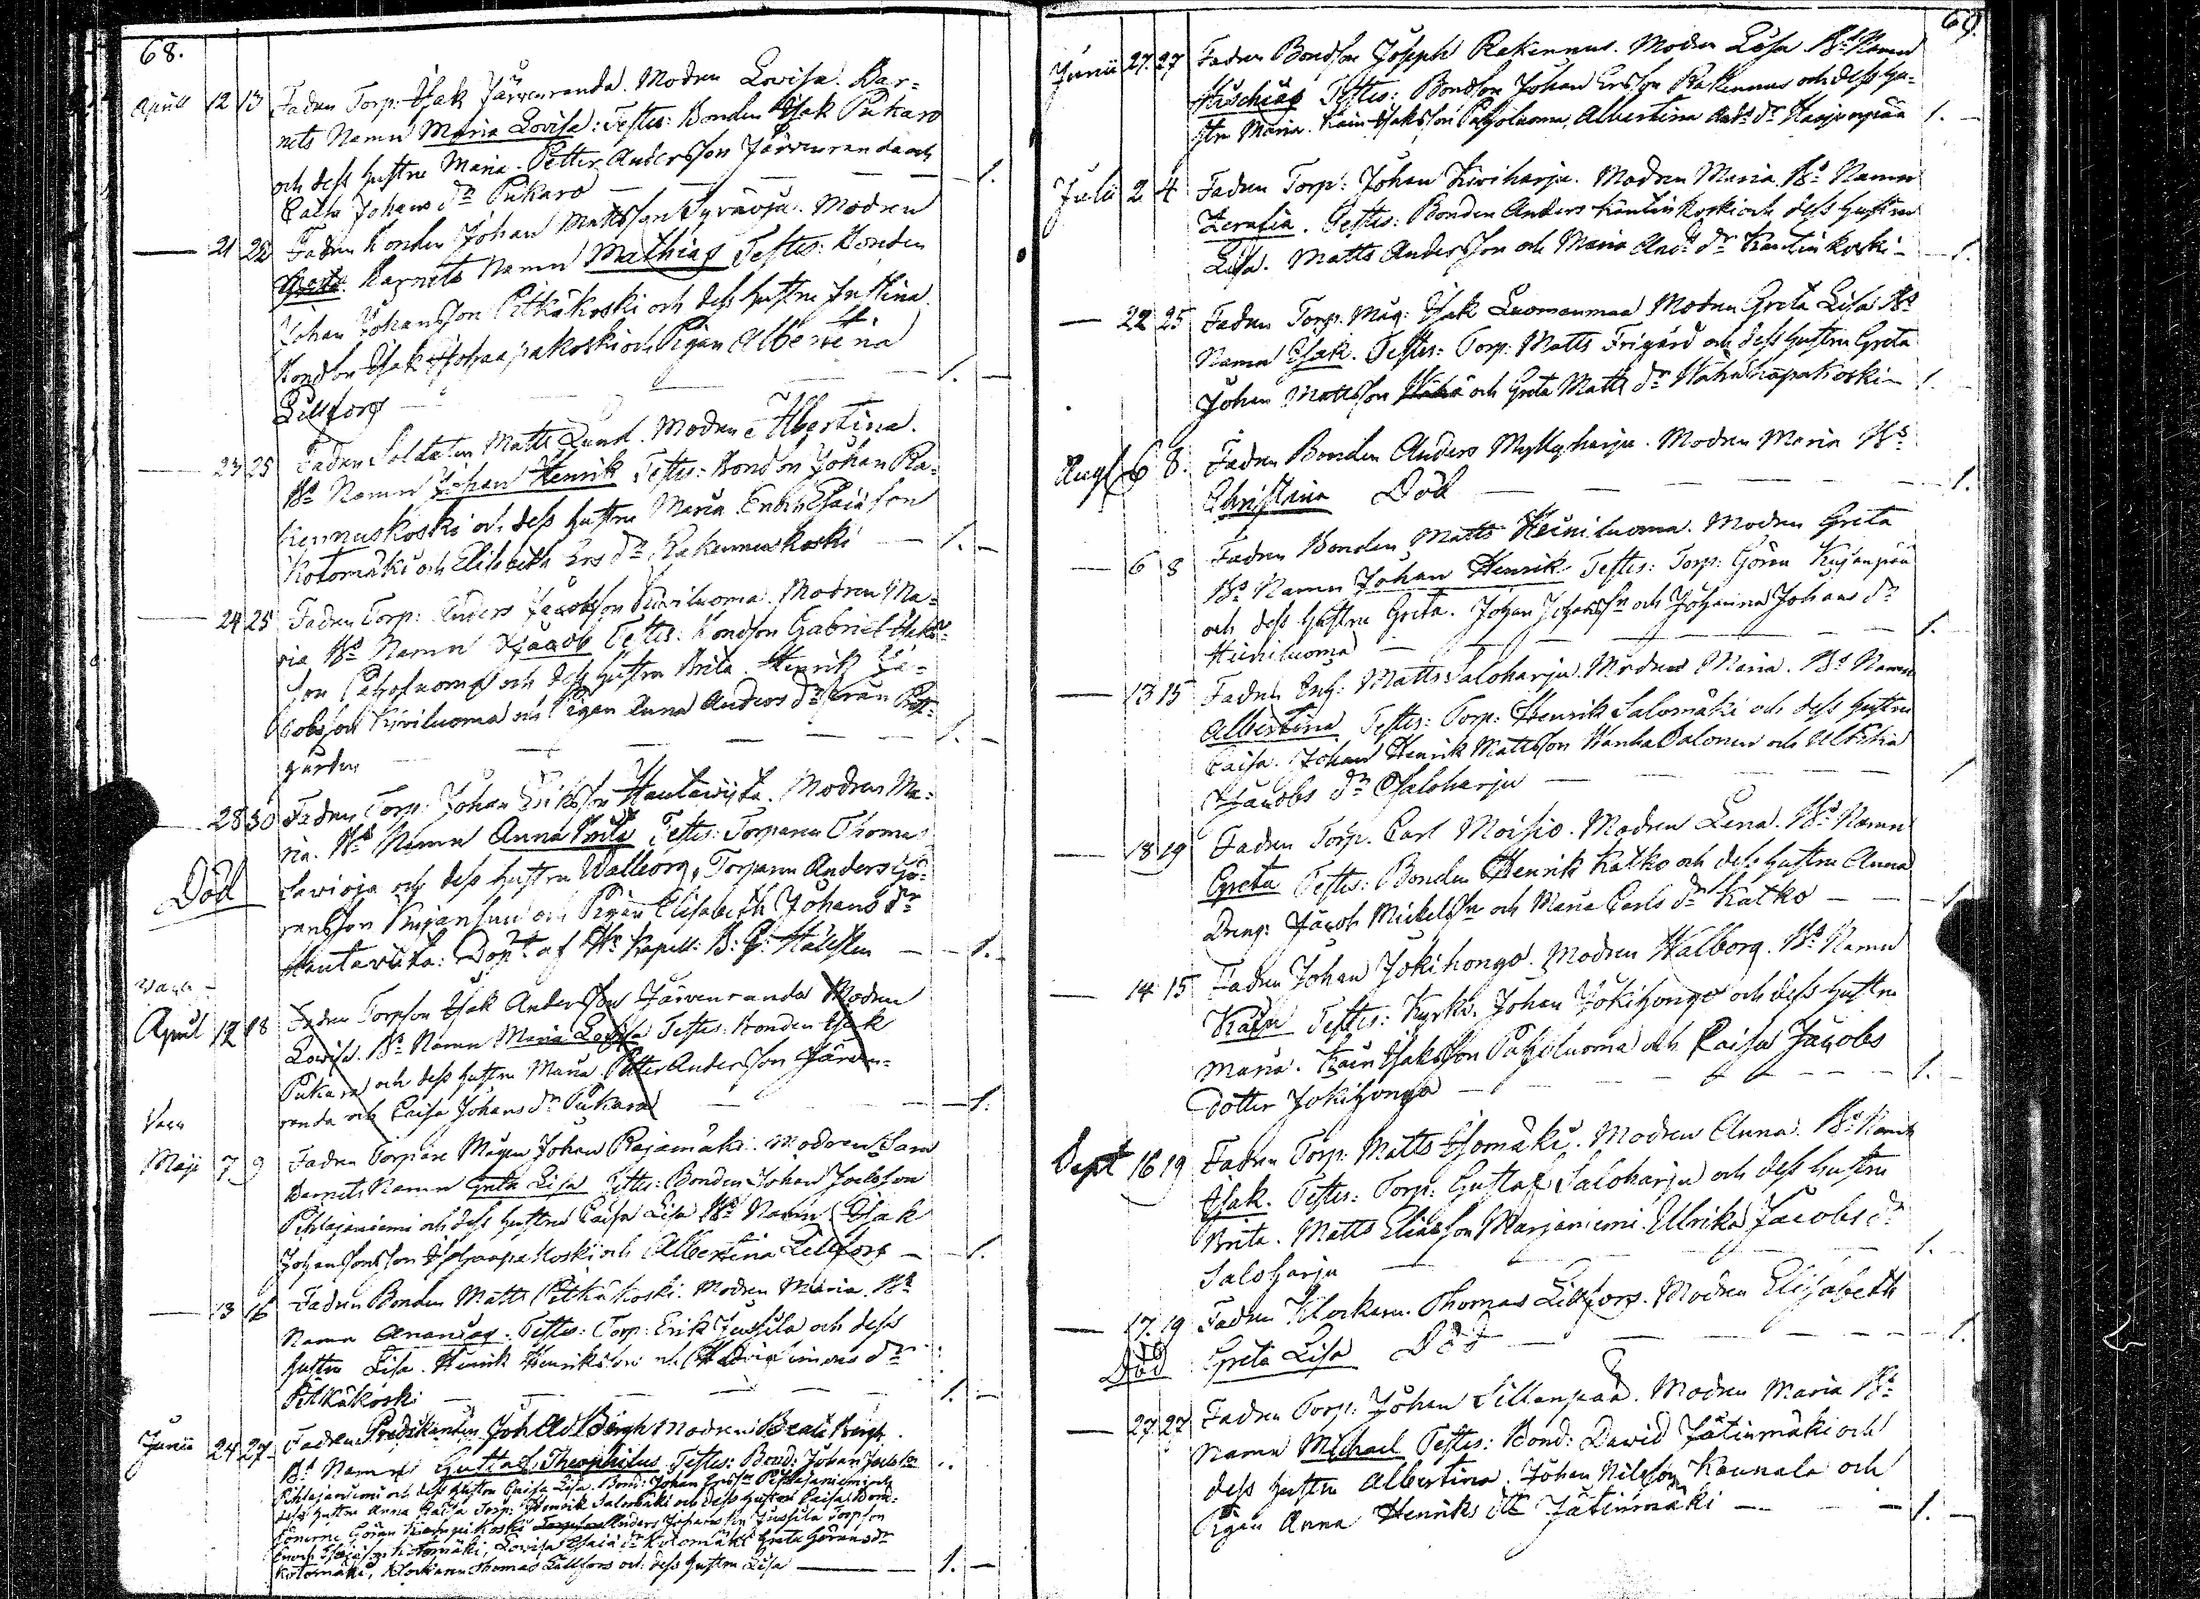 68.
Aprill 12 13 Fadren Torp: Isak Järvenranda. Modren Lovisa. Bar=
nets Namn Maria Lovisa: Testes: Bonden Isak Pukaro
och dess hustru Maria. Petter Andersson Järvenranda och
Caisa Johans dr Pukaro — 1. —
— 21 22 Fadren Bonden Johan Mattsson Syräoja. Modren
Greta. Barnets Namn Mathias Testes: Bonden
Johan Johansson Pitkäkoski och dess hustru Justina.
Bondson Isak Ishaapakoski och Pigan Albertina
Lillfors — 1. —
— 23 25 Fadren Soldaten Matts Lund. Modren Albertina.
Bs Namn Johan Henrik Testes: Bondson Johan Ra=
kennuskoski och dess hustru Maria. Esaiason
Kotomäki och Elisabeth Ers dr Rakennuskoski — 1. —
— 24 25 Fadren Torp: Anders Jacobsson Kiviluoma. Modren Ma=
ria Bs Namn Jacob Testes: Bondson Gabriel Isaks=
son Paholuoma och dess hustru Brita. Henrik Ja=
cobsson Kiviluoma och Pigan Anna Anders dr från Prest=
gården — 1. —
— 28 30 Fadren Torp: Johan Eriksson Hautaviita. Modren Ma=
ria. Bs Namn Anna Brita Testes: Torparen Thomas
Död Savioja och dess hustru Walborg, Torparen Anders Gö=
ransson Kujansuu och Pigan Elisabeth Johans dr
Hautaviita: Döpt af Hr Kapell: B: G: — 1. —
April 12 18 Fadren Torpson Isak Andersson Järvenranda Modren
Lovisa. Bs Namn Maria Lovisa Testes: Bonden Isak
Pukara och dess hustru Maria Petter Andersson Järven=
randa och Caisa Johans dr Pukara — 1.
Maji 7 9 Fadren Torpare Mågen Johan Rajamäki. Modren Sara
Barnets Namn Greta Lisa Testes: Bonden Johan Joelsson
Pihlajaniemi och dess hustru Caisa Lisa Bs Namn Isak
Johansson Ishaapakoski och Albertina Lillfors — 1.
— 13 16 Fadren Bonden Matts Pitkäkoski. Modren Maria. Bs
Namn Ananias. Testes: Torp: Erik Jussila och dess
hustru Lisa. Henrik Henriksson och Hedvig dr
Pitkäkoski — 1. —
Junii 24 27 Fadren Predikanten Joh Ad Bergh Modren Beata Bergh.
Bs Namn Gustaf Theophilus Testes: Bond: Johan Joelsson
Pihlajaniemi och dess hustru Caisa Lisa. Bond: Johan Ersson Pihlajaniemi och
dess hustru Anna Caisa Torp: Henrik Salomäki och dess hustru Caisa Bond=
sönerne Göran Torpson Anders Johansson Jussila Torpson
Enoch Esaiasson Kotomäki, Lovisa Esaiæ dr Kotomäki Greta Görans dr
Kotomäki, Klockaren Thomas Lillfors och dess hustru Lisa — 1. —
69.
Junii 27. 27 Fadren Bondson Joseph Rakennus. Modren Lisa. Bs Namn
Hischias Testes: Bondson Johan Ersson Rakennus och dess hu=
stru Maria. Kain Isaksson Paholuoma, Albertina Ands dr Harjunpää 1. —
Julii 2 4 Fadren Torp: Johan Kiviharju. Modren Maria. Bs Namn
Serafia. Testes: Bonden Anders Kantinkoski och dess hustru
Lisa. Matts Andersson och Maria Ands dr Kantinkoski — 1. —
— 22 25 Fadren Torp. Måg: Isak Luomanmaa Modren Greta Lisa Bs
Namn Isak. Testes: Torp: Matts Frigård och dess hustru Greta
Johan Mattsson och Greta Matts dr Wähähaapakoski — 1. —
Aug 6 8. Fadren Bonden Anders Myllyharju. Modren Maria Bs
Christina Död — 1.
— 6 8 Fadren Bonden Matts Heiniluoma. Modren Greta
Bs Namn Johan Henrik Testes: Torp: Göran Kujanpää
och dess hustru Greta. Johan Johansson och Johanna Johans dr
Heiniluoma — 1.
— 13 15 Fadren Inh: Matts Saloharju. Modren Maria. Bs Namn
Albertina Testes: Torp: Henrik Salomäki och dess hustru
Caisa. Johan Henrik Mattsson Wanhasalonen och Ulrika
Jacobs dr Saloharju — 1
— 18 19 Fadren Torp. Carl Moisio. Modren Lena. Bs Namn
Greta Testes: Bonden Henrik Katko och dess hustru Anna
Dreng: Jacob Mickelsson och Maria Carls dr Katko — 1
— 14 15 Fadren Johan Jokihonga. Modren Walborg. Bs Namn
Kain Testes: Kyrkv. Johan Jokihonga och dess hustru
Maria. Kain Isaksson Paholuoma och Caisa Jacobs
dotter Jokihonga — 1. —
Sept 16 19 Fadren Torp: Matts Isomäki. Modren Anna. Bs Namn
Isak. Testes: Torp: Gustaf Saloharju och dess hustru
Brita. Matts Eliasson Marjaniemi Ulrika Jacobs dr
Saloharju — 1.
— 17. 19 Fadren Klockaren Thomas Lillfors. Modren Elisabeth
Död Greta Lisa Död — 1.
— 27 27 Fadren Torp: Johan Sillanpää. Modren Maria Bs
Namn Michael Testes: Bond: David Jätinmäki och
dess hustru Albertina. Johan Nilsson Kaunala och
Pigan Anna Henriks dtr Jätinmäki — 1. —